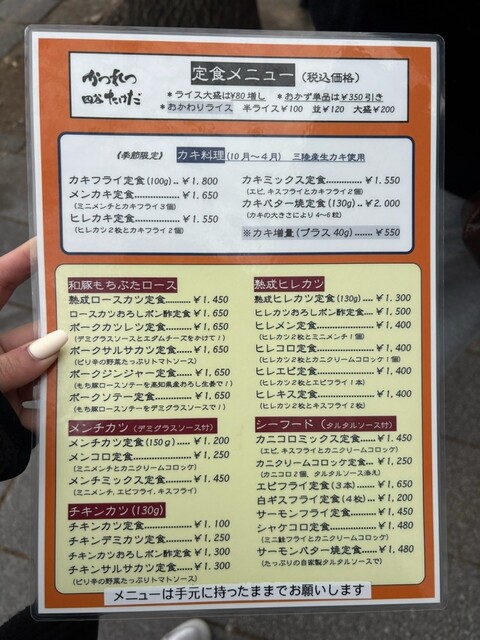 かつれつ
四谷たけだ
定食メニュー (税込価格)
*ライス大盛は¥80増し *おかず単品は¥350引き
*おかわりライス 半ライス¥100 並¥120 大盛¥200
《季節限定》 カキ料理(10月〜4月) 三陸産生カキ使用
カキフライ定食(100g)..¥1.800
メンカキ定食...............¥1.650
(ミニメンチとカキフライ3個)
ヒレカキ定食...............¥1.550
(ヒレカツ2枚とカキフライ2個)
カキミックス定食............¥1.550
(エビ,キスフライとカキフライ2個)
カキバター焼定食(130g)..¥2.000
(カキの大きさにより4〜6粒)
※カキ増量(プラス40g)......¥550
和豚もちぶたロース
熟成ロースカツ定食...........¥1.450
ロースカツおろしポン酢定食...¥1.650
ポークカツレツ定食............¥1.650
(デミグラスソースとエダムチーズをかけて!)
ポークサルサカツ定食.........¥1.650
(ピリ辛の野菜たっぷりトマトソース)
ポークジンジャー定食.........¥1.650
(もち豚ロースソテーを高知県産おろし生姜で!)
ポークソテー定食...............¥1.650
(もち豚ロースソテーをデミグラスソースで!)
メンチカツ (デミグラスソース付)
メンチカツ定食(150g)......¥1.200
メンコロ定食.....................¥1.250
(ミニメンチとカニクリームコロッケ)
メンチミックス定食............¥1.450
(ミニメンチ,エビフライ,キスフライ)
チキンカツ(130g)
チキンカツ定食..................¥1.100
チキンデミカツ定食............¥1.250
チキンカツおろしポン酢定食 ¥1.300
チキンサルサカツ定食.........¥1.300
(ピリ辛の野菜たっぷりトマトソース)
熟成ヒレカツ
熟成ヒレカツ定食(130g)....¥1.300
ヒレカツおろしポン酢定食....¥1.500
ヒレメン定食.....................¥1.400
(ヒレカツ2枚とミニメンチ1個)
ヒレコロ定食.....................¥1.400
(ヒレカツ2枚とカニクリームコロッケ1個)
ヒレエビ定食.....................¥1.400
(ヒレカツ2枚とエビフライ1本)
ヒレキス定食.....................¥1.400
(ヒレカツ2枚とキスフライ2枚)
シーフード (タルタルソース付)
カニコロミックス定食.........¥1.450
(エビ,キスフライとカニクリームコロッケ)
カニクリームコロッケ定食...¥1.250
(カニコロ2個,タルタルソース添え)
エビフライ定食(3本)......¥1.650
白ギスフライ定食(4枚)...¥1.200
サーモンフライ定食............¥1.450
シャケコロ定食..................¥1.480
(ミニ鮭フライとカニクリームコロッケ)
サーモンバター焼定食.........¥1.480
(たっぷりの自家製タルタルソースで)
メニューは手元に持ったままでお願いします